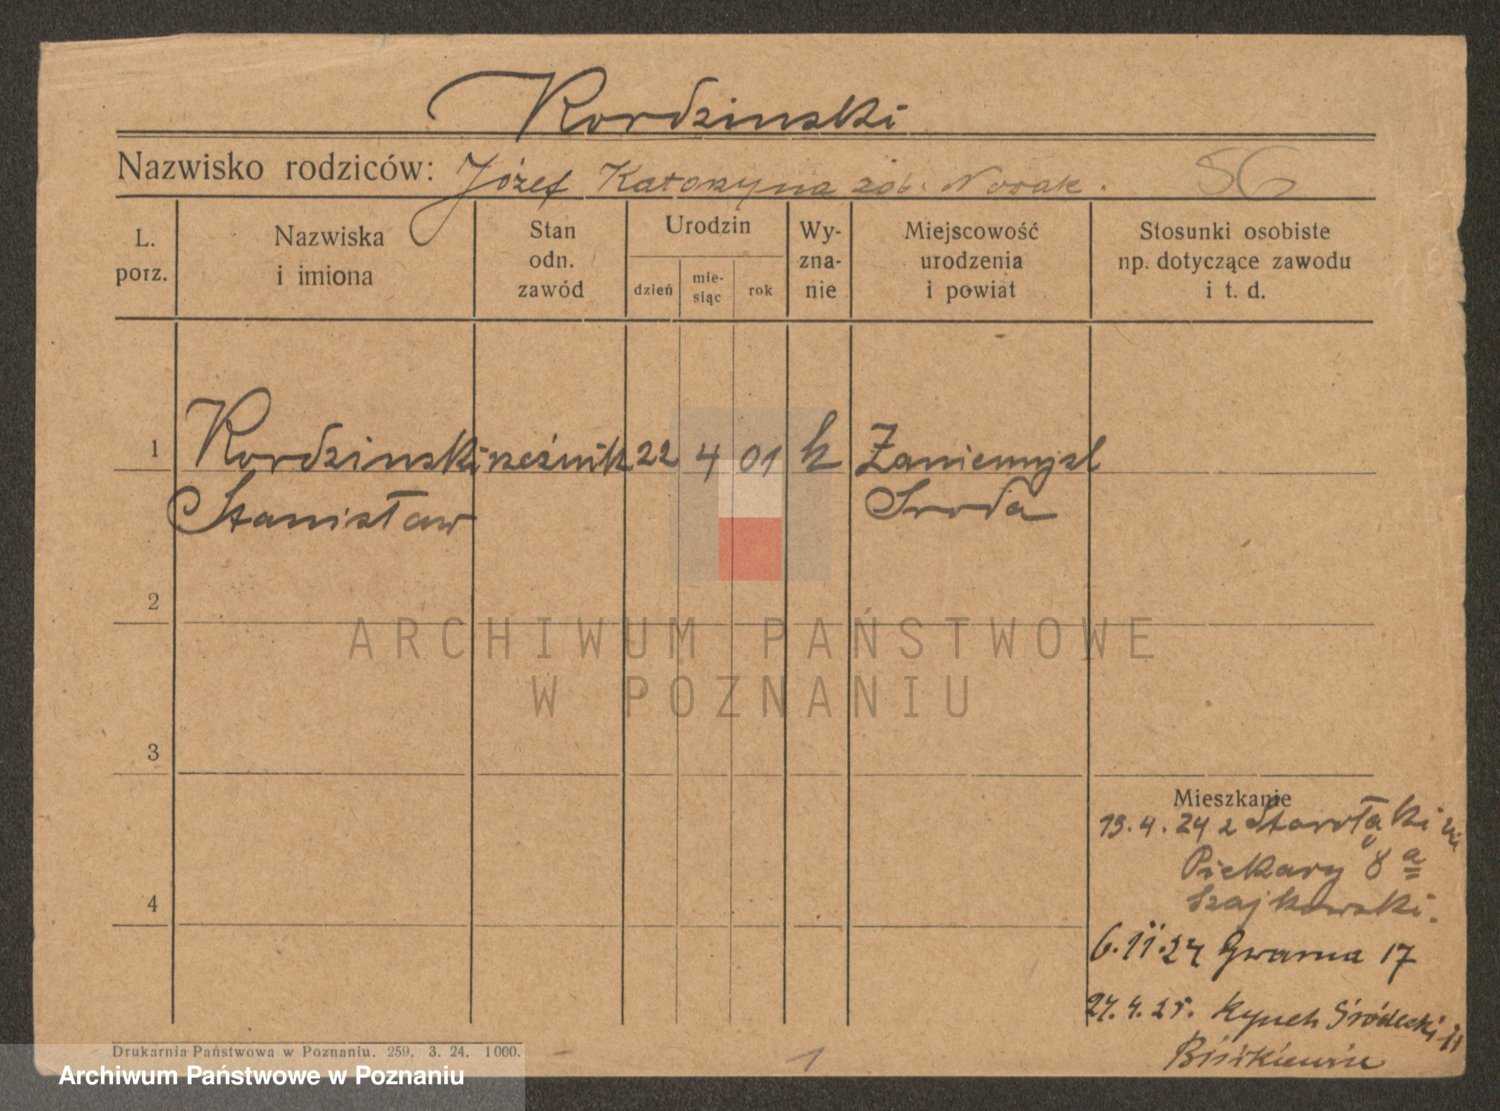 Kordzinski
Nazwisko rodziców: Józef Katarzyna żob. Nowak.
56
L. porz.
Nazwiska i imiona
Stan odn. zawód
Urodzin
dzień
mie-
siąc
rok
Wy-
zna-
nie
Miejscowość urodzenia i powiat
Stosunki osobiste np. dotyczące zawodu i t. d.
1 Kordzinski rzeźnik 22 4 01 k Zaniemysl
Stanisław Sroda
2
3
4
ARCHIWUM PAŃSTWOWE
W POZNANIU
Mieszkanie
13.4.24 z Starołęki
Piekary 8 a
Szajkowski.
6.11.24 Gwarna 17
27.4.25. Rynek Śródecki 11
Drukarnia Państwowa w Poznaniu. 259. 3. 24. 1000.
1
Archiwum Państwowe w Poznaniu